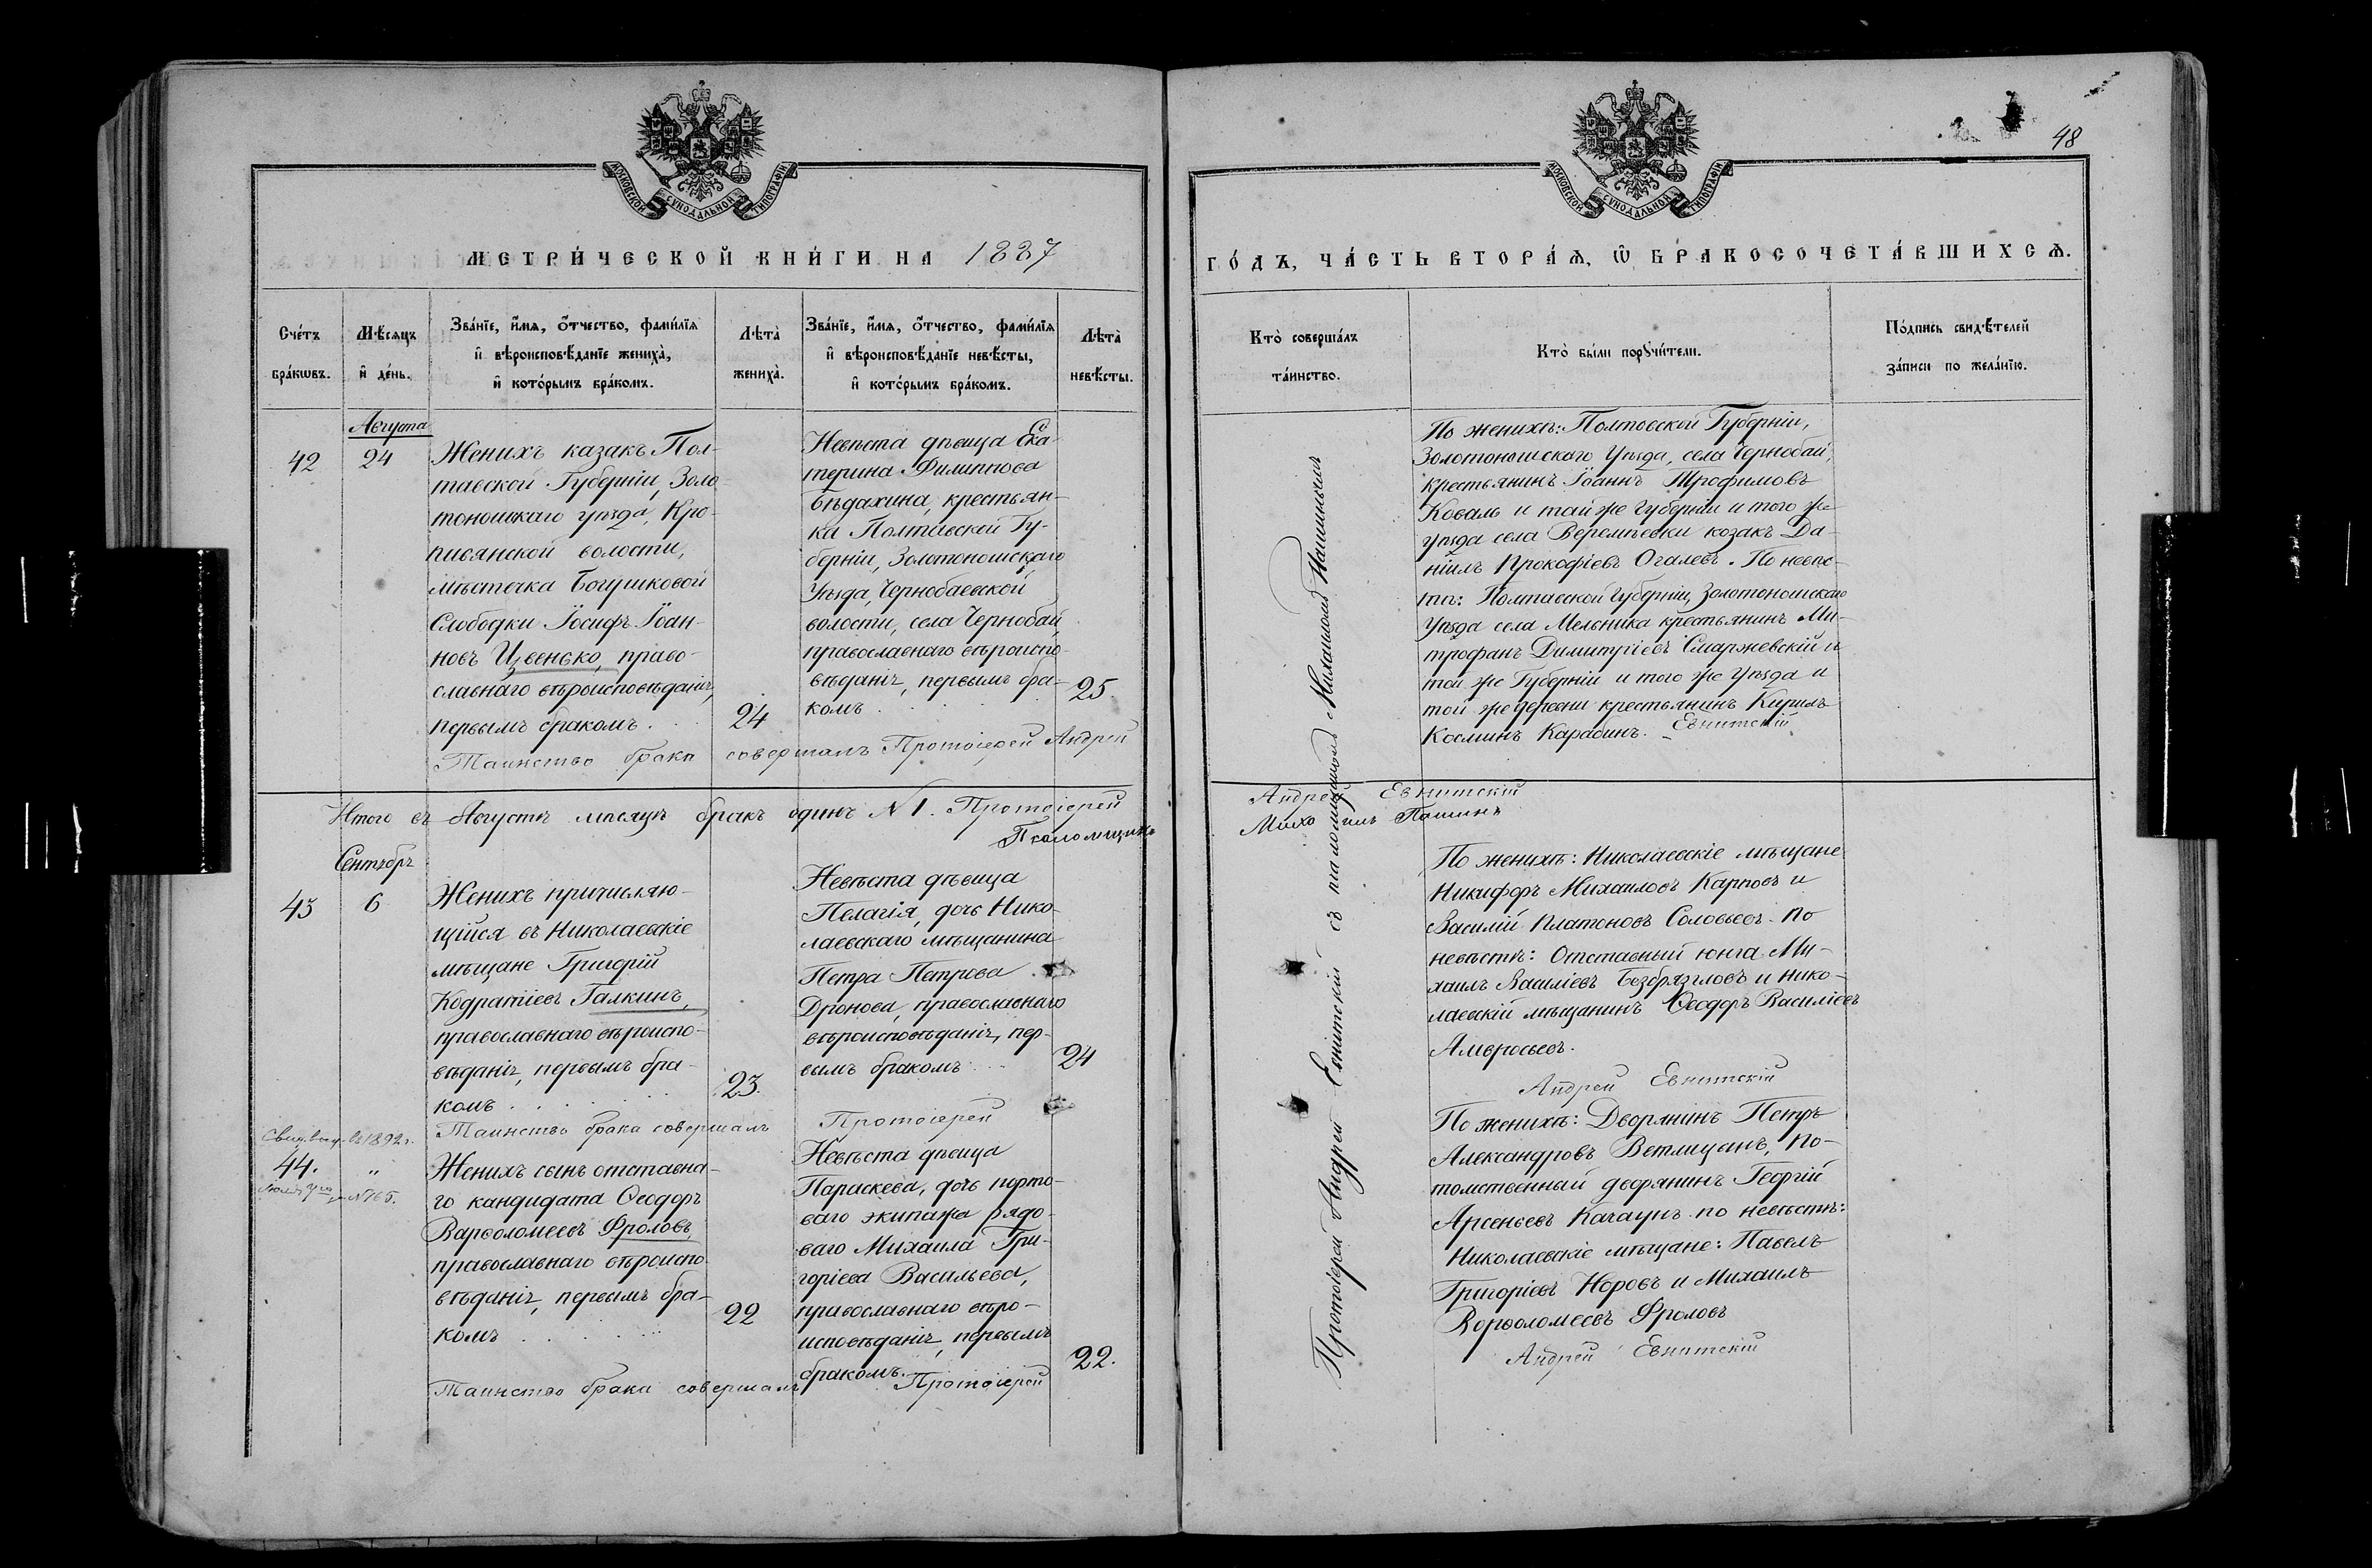 48
МОСКОВСКОЙ СѴНОДАЛЬНОЙ ТИПОГРАФІИ
МОСКОВСКОЙ СѴНОДАЛЬНОЙ ТИПОГРАФІИ
МЕТРИ́ЧЕСКОЙ КНИ́ГИ НА 1887
ГО́ДЪ, ЧА́СТЬ ВТОРА́Ѧ, Ѡ҆ БРАКОСОЧЕТА́ВШИХСѦ.
Сче́тъ
бра́кѡвъ.
Мѣ́сѧцъ
и҆ де́нь.
Зва́нїе, и҆́мѧ, ѻ҆́тчество, фами́лїѧ
и҆ вѣроисповѣ́данїе жениха̀,
и҆ кото́рымъ бра́комъ.
Лѣта̀
жениха̀.
Зва́нїе, и҆́мѧ, ѻ҆́тчество, фами́лїѧ
и҆ вѣроисповѣ́данїе невѣ́сты,
и҆ кото́рымъ бра́комъ.
Лѣта̀
невѣ́сты.
Кто̀ соверша́лъ
та́инство.
Кто̀ бы́ли порꙋчи́тели.
По́дпись свидѣ́телей
за́писи по жела́нїю.
Августа
42
24
Женихъ казакъ Пол-
тавской Губерніи, Золо-
тоношкаго уѣзда, Кро-
пивянской волости,
мѣстечка Богушковой
Слободки Іосифъ Іоан-
новъ Цвенько, право-
славнаго вѣроисповѣданія,
первымъ бракомъ . . .
24
Невѣста дѣвица Ека-
терина Филиппова
Бѣдахина, крестьян-
ка Полтавской Гу-
берніи, Золотоношскаго
Уѣзда, Чернобаевской
волости, села Чернобай,
православнаго вѣроиспо-
вѣданія, первымъ бра-
комъ . . . . .
25.
По женихѣ: Полтовской Губерніи,
Золотоношскаго Уѣзда, села Чернобай,
крестьянинъ Іоаннъ Трофимовъ
Коваль и той же губерніи и того же
уѣзда села Веремѣевки козакъ Да-
ніилъ Прокофіевъ Огалевъ. По невѣс-
тѣ: Полтавской Губерніи, Золотоношскаго
Уѣзда села Мельника крестьянинъ Ми-
трофанъ Димитріевъ Смаржевскій и
той же Губерніи и того же Уѣзда и
той же деревни крестьянинъ Кирилъ
Косминъ Карабинъ.
Таинство брака совершалъ Протоіерей Андрей
Евнитскій
Итого въ Августѣ мѣсяцѣ бракъ одинъ № 1. Протоіерей
Андрей Евнитскій
Псаломщикъ
Михаилъ Пашинъ
Сентябрь
43
6
Женихъ причисляю-
щійся въ Николаевскіе
мѣщане Григорій
Кодратіевъ Галкинъ,
православнаго вѣроиспо-
вѣданія, первымъ бра-
комъ . . . . . .
23.
Невѣста дѣвица
Пелагія, дочь Нико-
лаевскаго мѣщанина
Петра Петрова
Дронова, православнаго
вѣроисповѣданія, пер-
вымъ бракомъ . . .
24
По женихѣ: Николаевскіе мѣщане
Никифоръ Михаиловъ Карповъ и
Василій Платоновъ Соловьевъ. По
невѣстѣ: Отставный юнга Ми-
хаилъ Василіевъ Безбрязгловъ и Нико-
лаевскій мѣщанинъ Ѳеодоръ Василіевъ
Амвросьевъ.
Таинство брака совершалъ Протоіерей
Андрей Евнитскій
1892 г.
44.
„
№ 765.
Женихъ сынъ отставна-
го кандидата Ѳеодоръ
Варѳоломеевъ Фроловъ,
православнаго вѣроиспо-
вѣданія, первымъ бра-
комъ . . . . . .
22
Невѣста дѣвица
Параскева, дочь порто-
ваго экипажа рядо-
ваго Михаила Гри-
горіева Васильева,
православнаго вѣро-
исповѣданія, первымъ
бракомъ.
22.
По женихѣ: Дворянинъ Петръ
Александровъ Ветлицынъ, по-
томственный дворянинъ Георгій
Арсеньевъ Качаунъ. по невѣстѣ:
Николаевскіе мѣщане: Павелъ
Григоріевъ Норовъ и Михаилъ
Ворѳоломеевъ Фроловъ
Таинство брака совершалъ Протоіерей
Андрей Евнитскій
Протоіерей Андрей Евнитскій съ псаломщикомъ Михаиломъ Пашинымъ